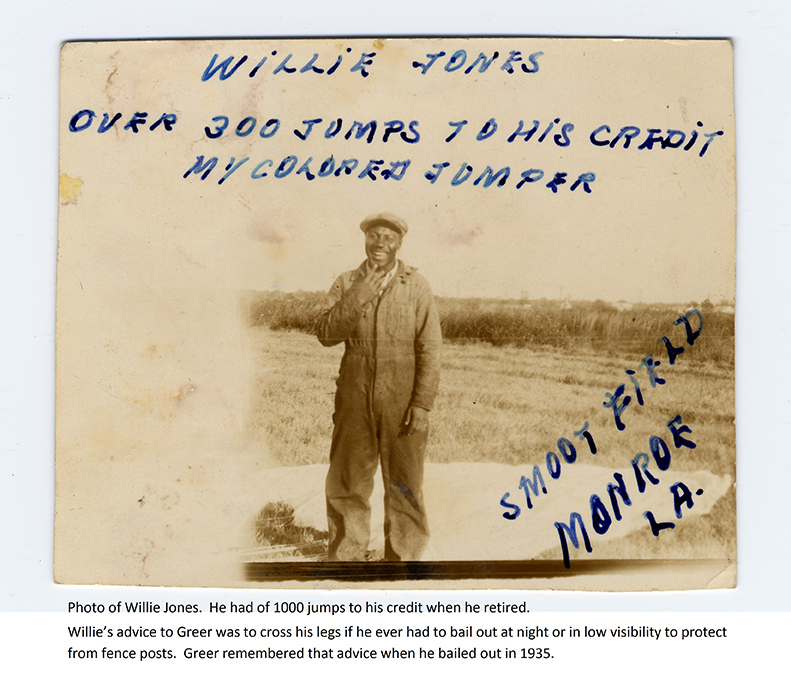 WiLLiE JONES
OVER 300 JUMPS TO HiS CREDiT
MY COLORED JUMPER
SMOOT FiELD
MONROE
LA.
Photo of Willie Jones.  He had of 1000 jumps to his credit when he retired.
Willie’s advice to Greer was to cross his legs if he ever had to bail out at night or in low visibility to protect
from fence posts.  Greer remembered that advice when he bailed out in 1935.